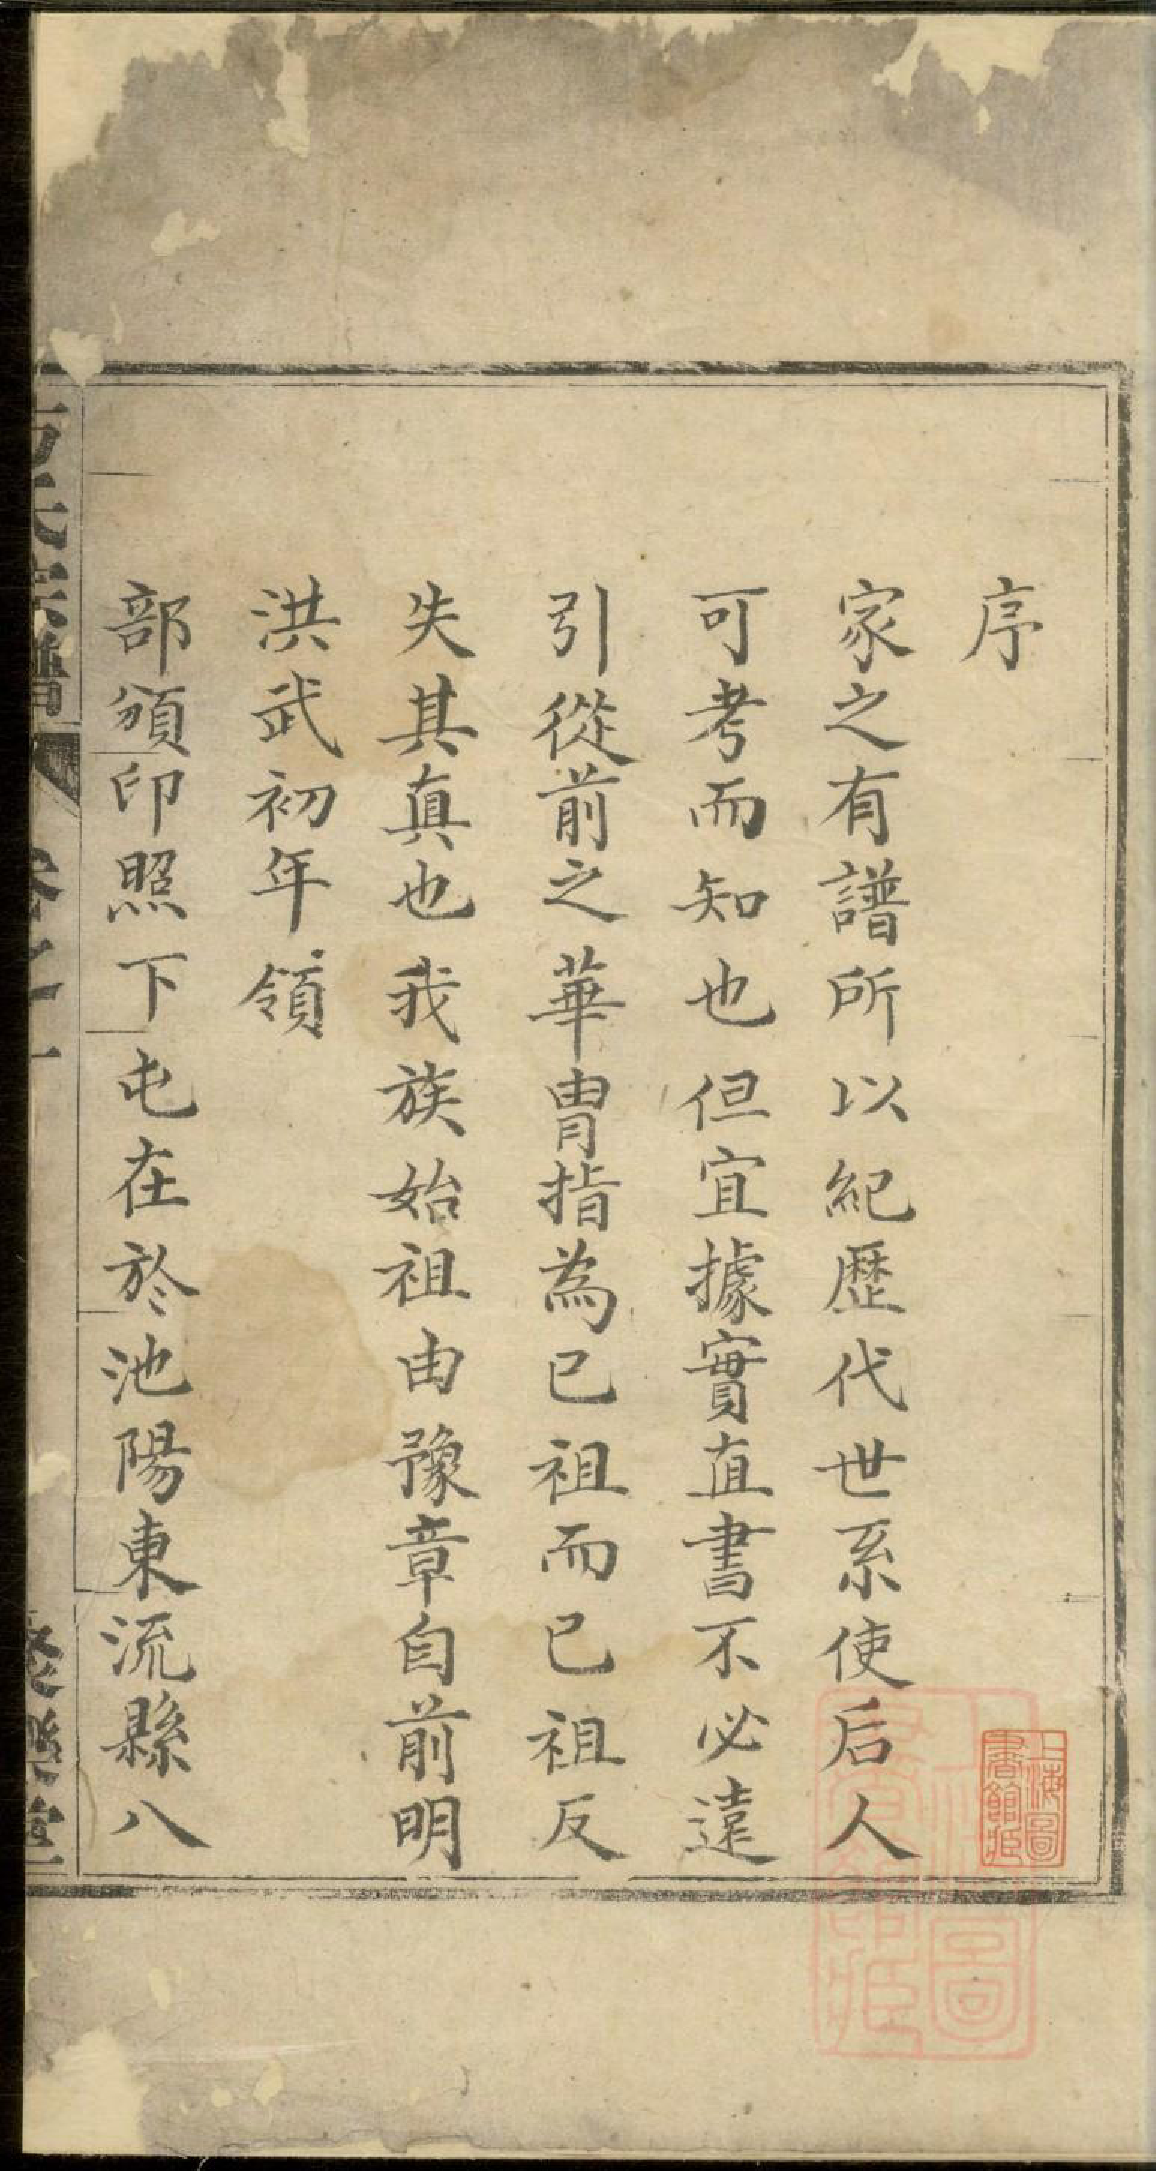 序
家之有譜所以紀歷代世系使后人
可考而知也但宜據實直書不必遠
引從前之華冑指為已祖而已祖反
失其真也我族始祖由豫章自前明
洪武初年領
部頒印照下屯在於池陽東流縣八
氏宗譜
卷之一
聚樂堂
上海圖書館藏
上海圖書館藏